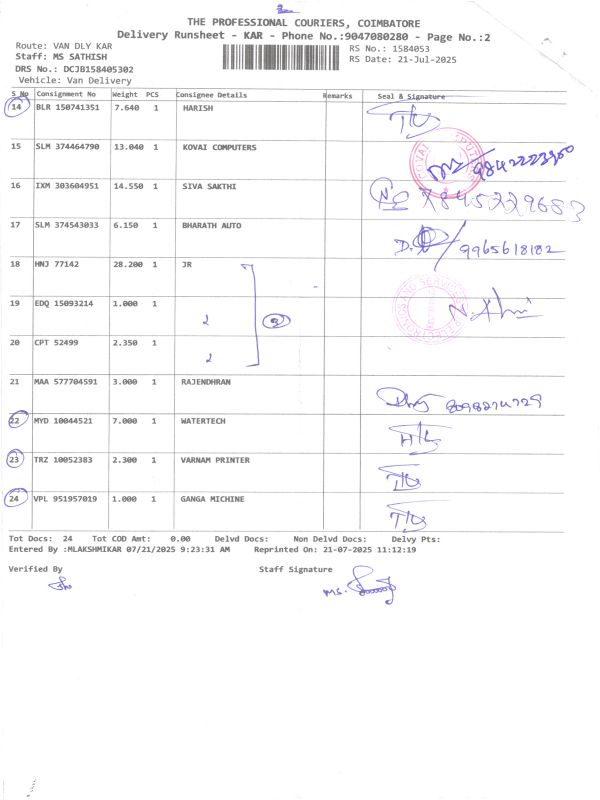 THE PROFESSIONAL COURIERS, COIMBATORE
Delivery Runsheet - KAR - Phone No.:9047080280 - Page No.:2
Route: VAN DLY KAR
Staff: MS SATHISH
DRS No.: DCJB158405302
Vehicle: Van Delivery
RS No.: 1584053
RS Date: 21-Jul-2025
S No Consignment No Weight PCS Consignee Details Remarks Seal & Signature
14 BLR 150741351 7.640 1 HARISH
15 SLM 374464790 13.040 1 KOVAI COMPUTERS
16 IXM 303604951 14.550 1 SIVA SAKTHI
17 SLM 374543033 6.150 1 BHARATH AUTO 9965618182
18 HNJ 77142 28.200 1 JR
19 EDQ 15093214 1.000 1
20 CPT 52499 2.350 1
21 MAA 577704591 3.000 1 RAJENDHRAN 8098274729
22 MYD 10044521 7.000 1 WATERTECH
23 TRZ 10052383 2.300 1 VARNAM PRINTER
24 VPL 951957019 1.000 1 GANGA MICHINE
Tot Docs: 24 Tot COD Amt: 0.00 Delvd Docs: Non Delvd Docs: Delvy Pts:
Entered By :MLAKSHMIKAR 07/21/2025 9:23:31 AM Reprinted On: 21-07-2025 11:12:19
Verified By Staff Signature
MS.